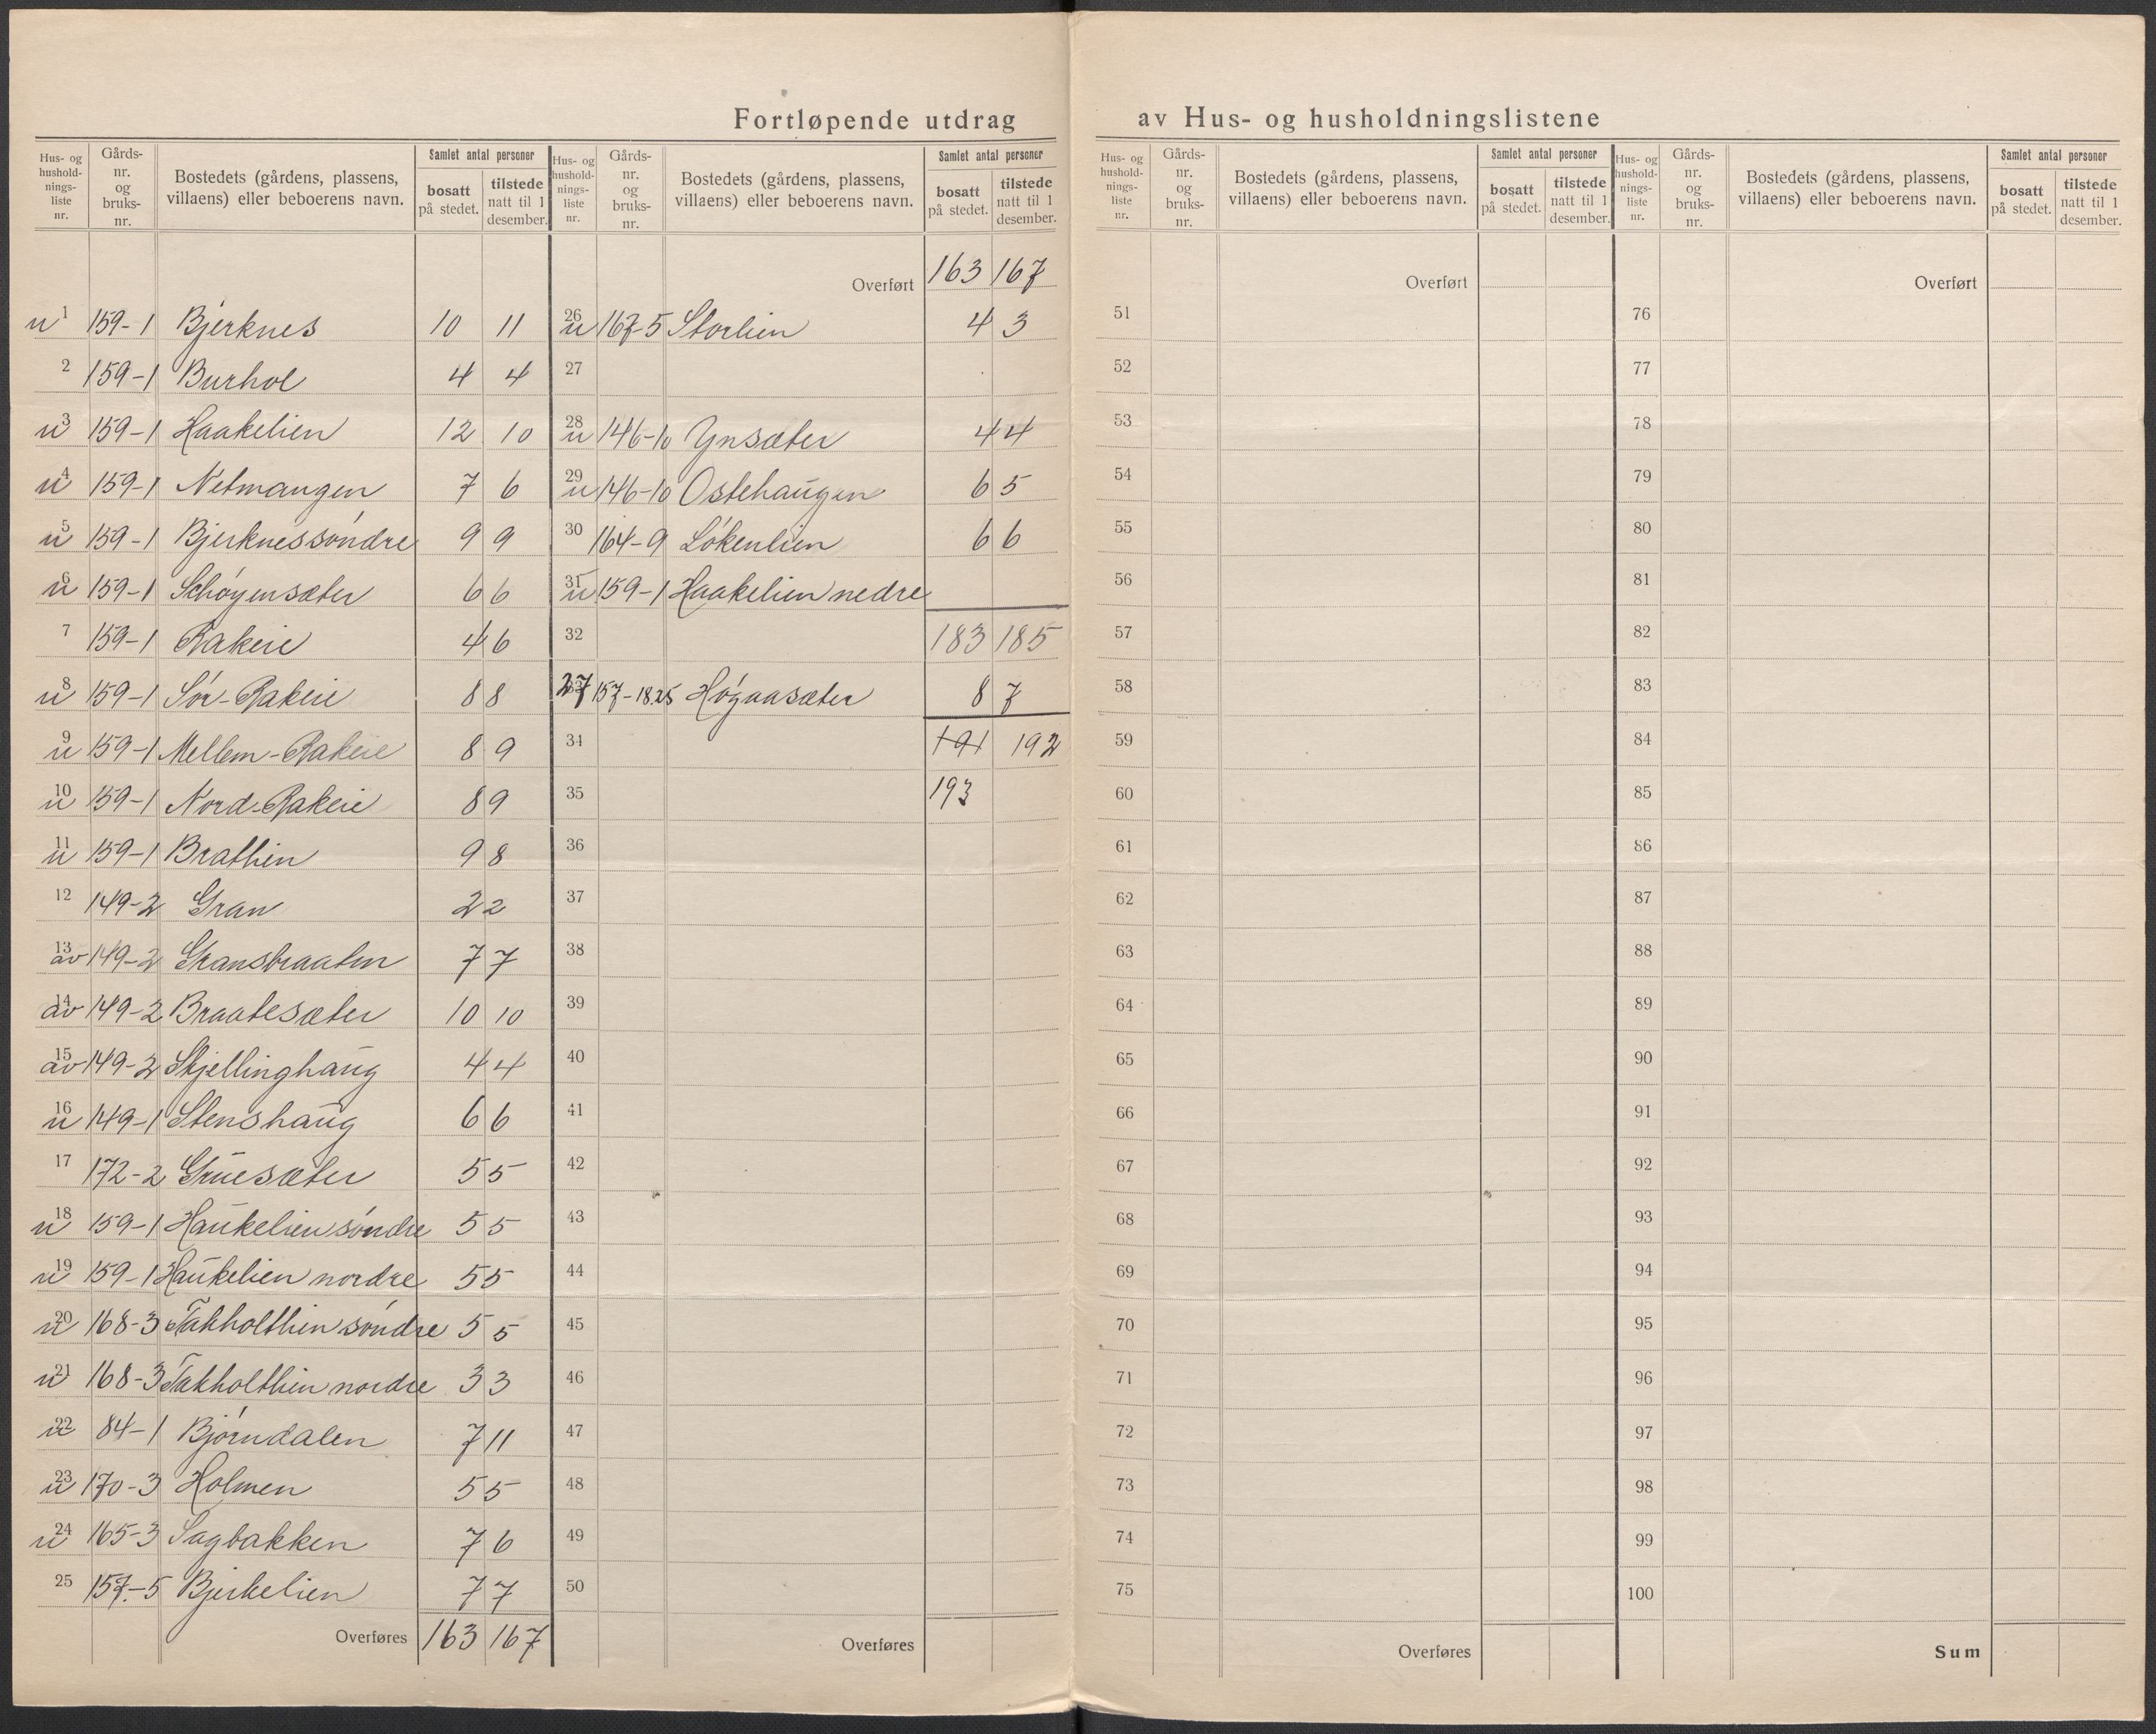 Fortløpende utdrag av Hus- og husholdningslistene
Hus- og husholdnings-liste nr. | Gårds-nr. og bruks-nr. | Bostedets (gårdens, plassens, villaens) eller beboerens navn. | Samlet antal personer | bosatt på stedet. | tilstede natt til 1 desember.
u 1 159-1 Bjerknes 10 11
2 159-1 Burhol 4 4
u 3 159-1 Haakelien 12 10
u 4 159-1 Netmangen 7 6
u 5 159-1 Bjerknes søndre 9 9
u 6 159-1 Schøyensæter 6 6
7 159-1 Rakeie 4 6
u 8 159-1 Sør-Rakeie 8 8
u 9 159-1 Mellem-Rakeie 8 9
u 10 159-1 Nord-Rakeie 8 9
u 11 159-1 Bratlien 9 8
12 149-2 Gran 2 2
av 13 149-2 Gransbraaten 7 7
av 14 149-2 Braatesæter 10 10
av 15 149-2 Skjellinghaug 4 4
u 16 149-1 Stenshaug 6 6
17 172-2 Gruesæter 5 5
u 18 159-1 Haukelien søndre 5 5
u 19 159-1 Haukelien nordre 5 5
u 20 168-3 Takholtlien søndre 5 5
u 21 168-3 Takholtlien nordre 3 3
u 22 84-1 Bjørndalen 7 11
u 23 170-3 Holmen 5 5
u 24 165-3 Sagbakken 7 6
25 157-5 Bjerkelien 7 7
Overføres 163 167
Hus- og husholdnings-liste nr. | Gårds-nr. og bruks-nr. | Bostedets (gårdens, plassens, villaens) eller beboerens navn. | Samlet antal personer | bosatt på stedet. | tilstede natt til 1 desember.
Overført 163 167
u 26 167-5 Storlien 4 3
27
u 28 146-10 Ynsæter 4 4
u 29 146-10 Ostehaugen 6 5
30 164-9 Løkenlien 6 6
u 31 159-1 Haakelien nedre
32 183 185
27 157-18.25 Høgaasæter 8 7
34 191 192
35 193
36
37
38
39
40
41
42
43
44
45
46
47
48
49
50
Overføres
Hus- og husholdnings-liste nr. | Gårds-nr. og bruks-nr. | Bostedets (gårdens, plassens, villaens) eller beboerens navn. | Samlet antal personer | bosatt på stedet. | tilstede natt til 1 desember.
Overført
51
52
53
54
55
56
57
58
59
60
61
62
63
64
65
66
67
68
69
70
71
72
73
74
75
Overføres
Hus- og husholdnings-liste nr. | Gårds-nr. og bruks-nr. | Bostedets (gårdens, plassens, villaens) eller beboerens navn. | Samlet antal personer | bosatt på stedet. | tilstede natt til 1 desember.
Overført
76
77
78
79
80
81
82
83
84
85
86
87
88
89
90
91
92
93
94
95
96
97
98
99
100
Sum